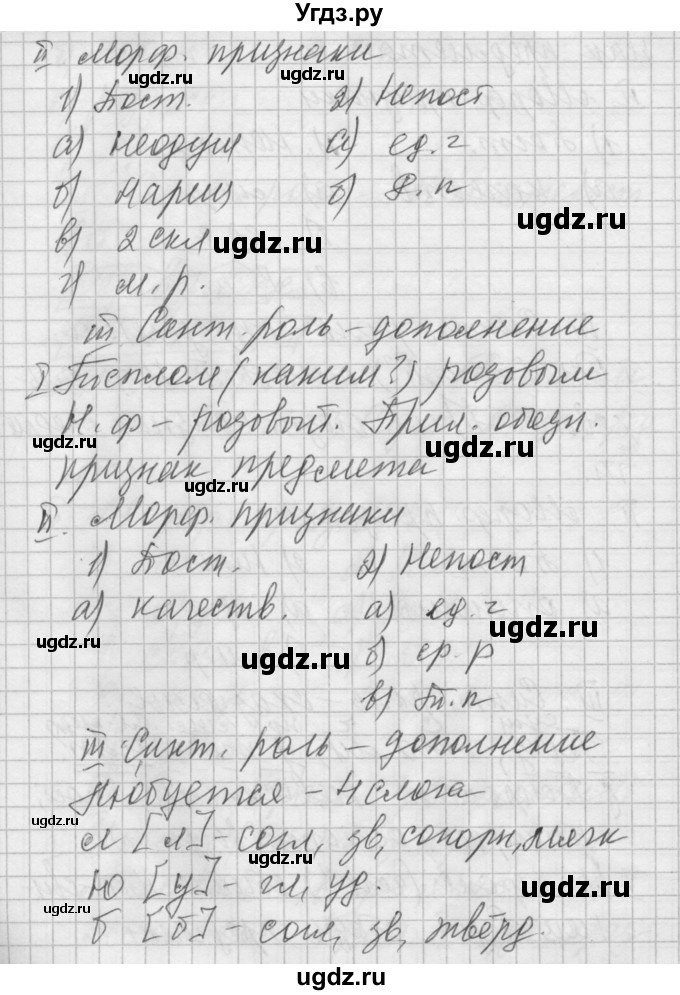 Угдз.ру
II Морф. признаки
ugdz.ru ugdz.ru
1) Пост. 2) Непост
а) неодуш а) ед. ч
б) нариц б) Д. п
ugdz.ru
в) 2 скл ugdz.ru
г) м. р.
III Синт. роль – дополнение
I (каким?) розовым
Н. ф – розовый. Прил. обозн.
ugdz.ru ugdz.ru
признак предмета ugdz.ru
II. Морф. признаки
1) Пост. 2) Непост
а) качеств. а) ед. ч
ugdz.ru ugdz.ru ugdz.ru
б) ср. р
в) Т. п
III Синт. роль – дополнение
Любуется – 4 слога
ugdz.ru
л [л] – согл, зв, сонорн, мягк
ugdz.ru
ю [у] – гл, уд.
ugdz.ru ugdz.ru
б [б] – согл, зв, твёрд.
ugdz.ru